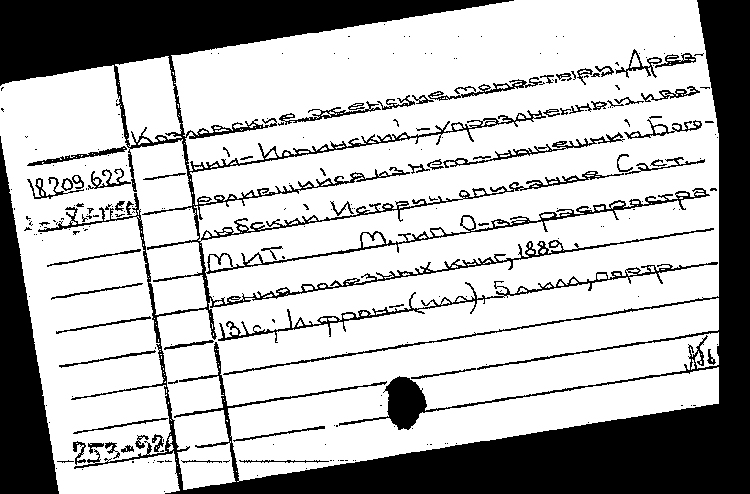 Козловские женские монастыри: Древ-
ний-Ильинский,-упраздненный и воз-
18.209.622
родившийся из него-нынешний Бого-
любский. Историч. описание Сост.
М.И.Т. М., тип. О-ва распростра-
нения полезных книг, 1889.
131 с; 1 л. фронт.(илл), 5 л. илл, портр.
253-926